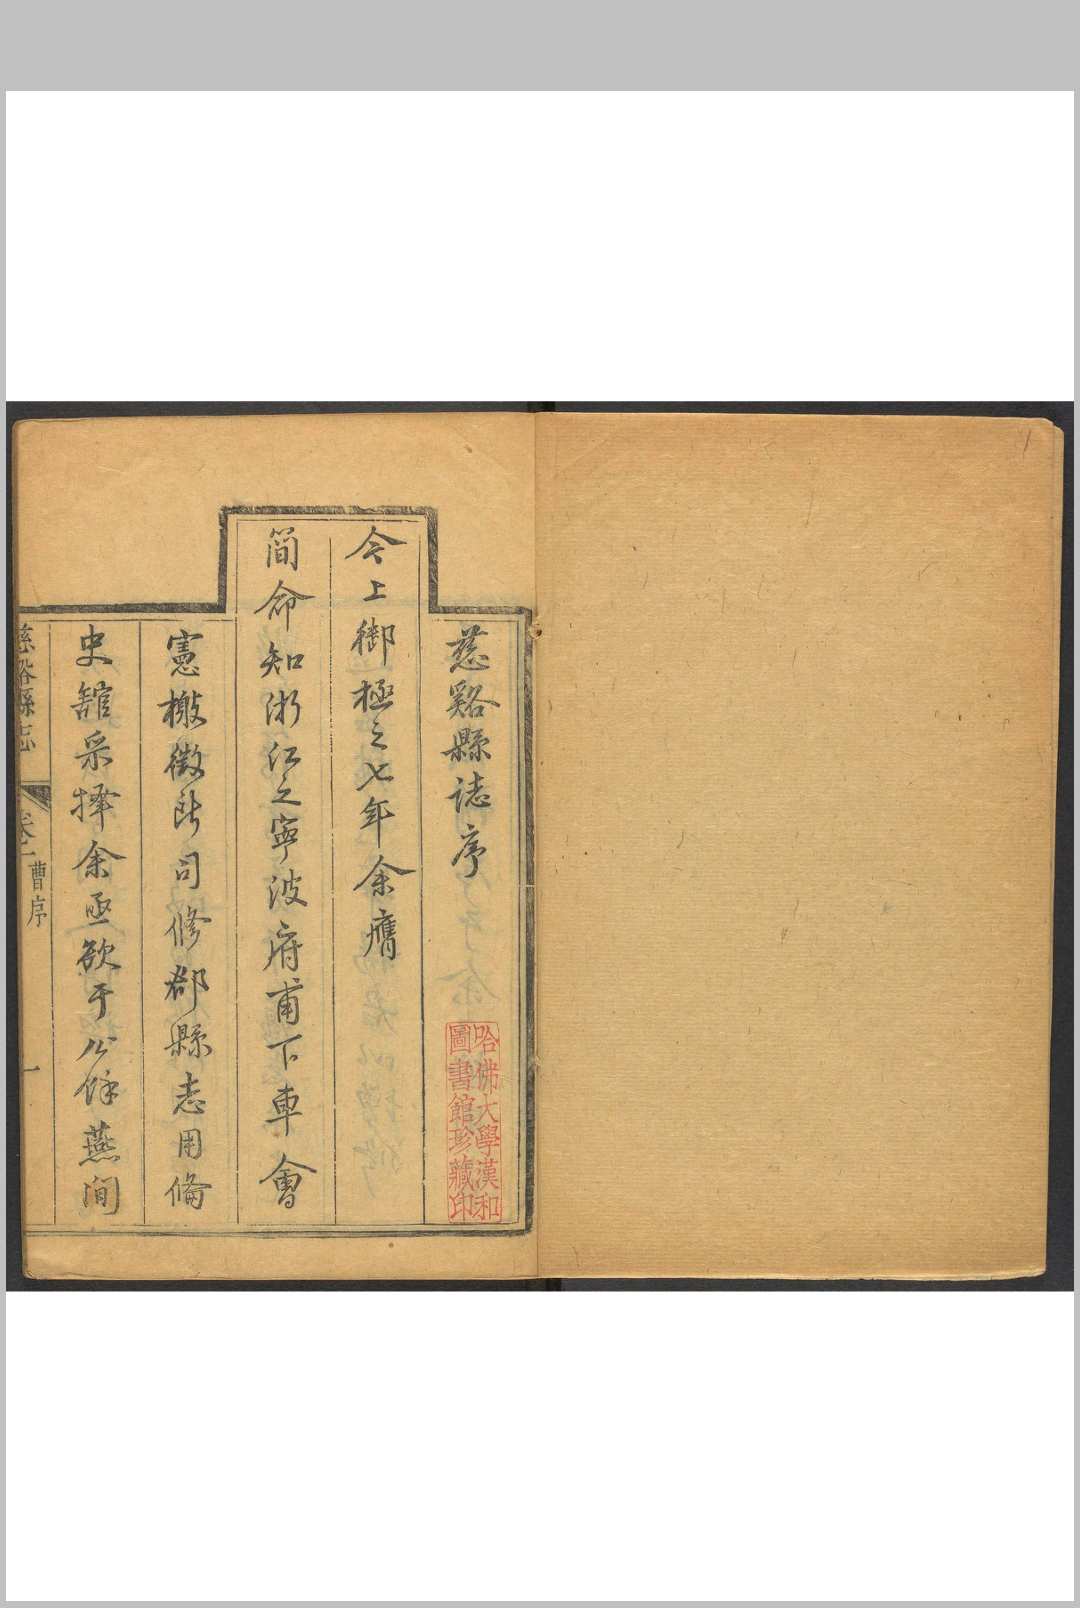 慈谿縣誌序
今上御極之七年余膺
簡命知浙江之寧波府甫下車會
憲檄徵所司修郡縣志用備
史館采擇余亟欲于公餘燕閒
慈谿縣志
曹序
一
哈佛大學漢和
圖書館珍藏印